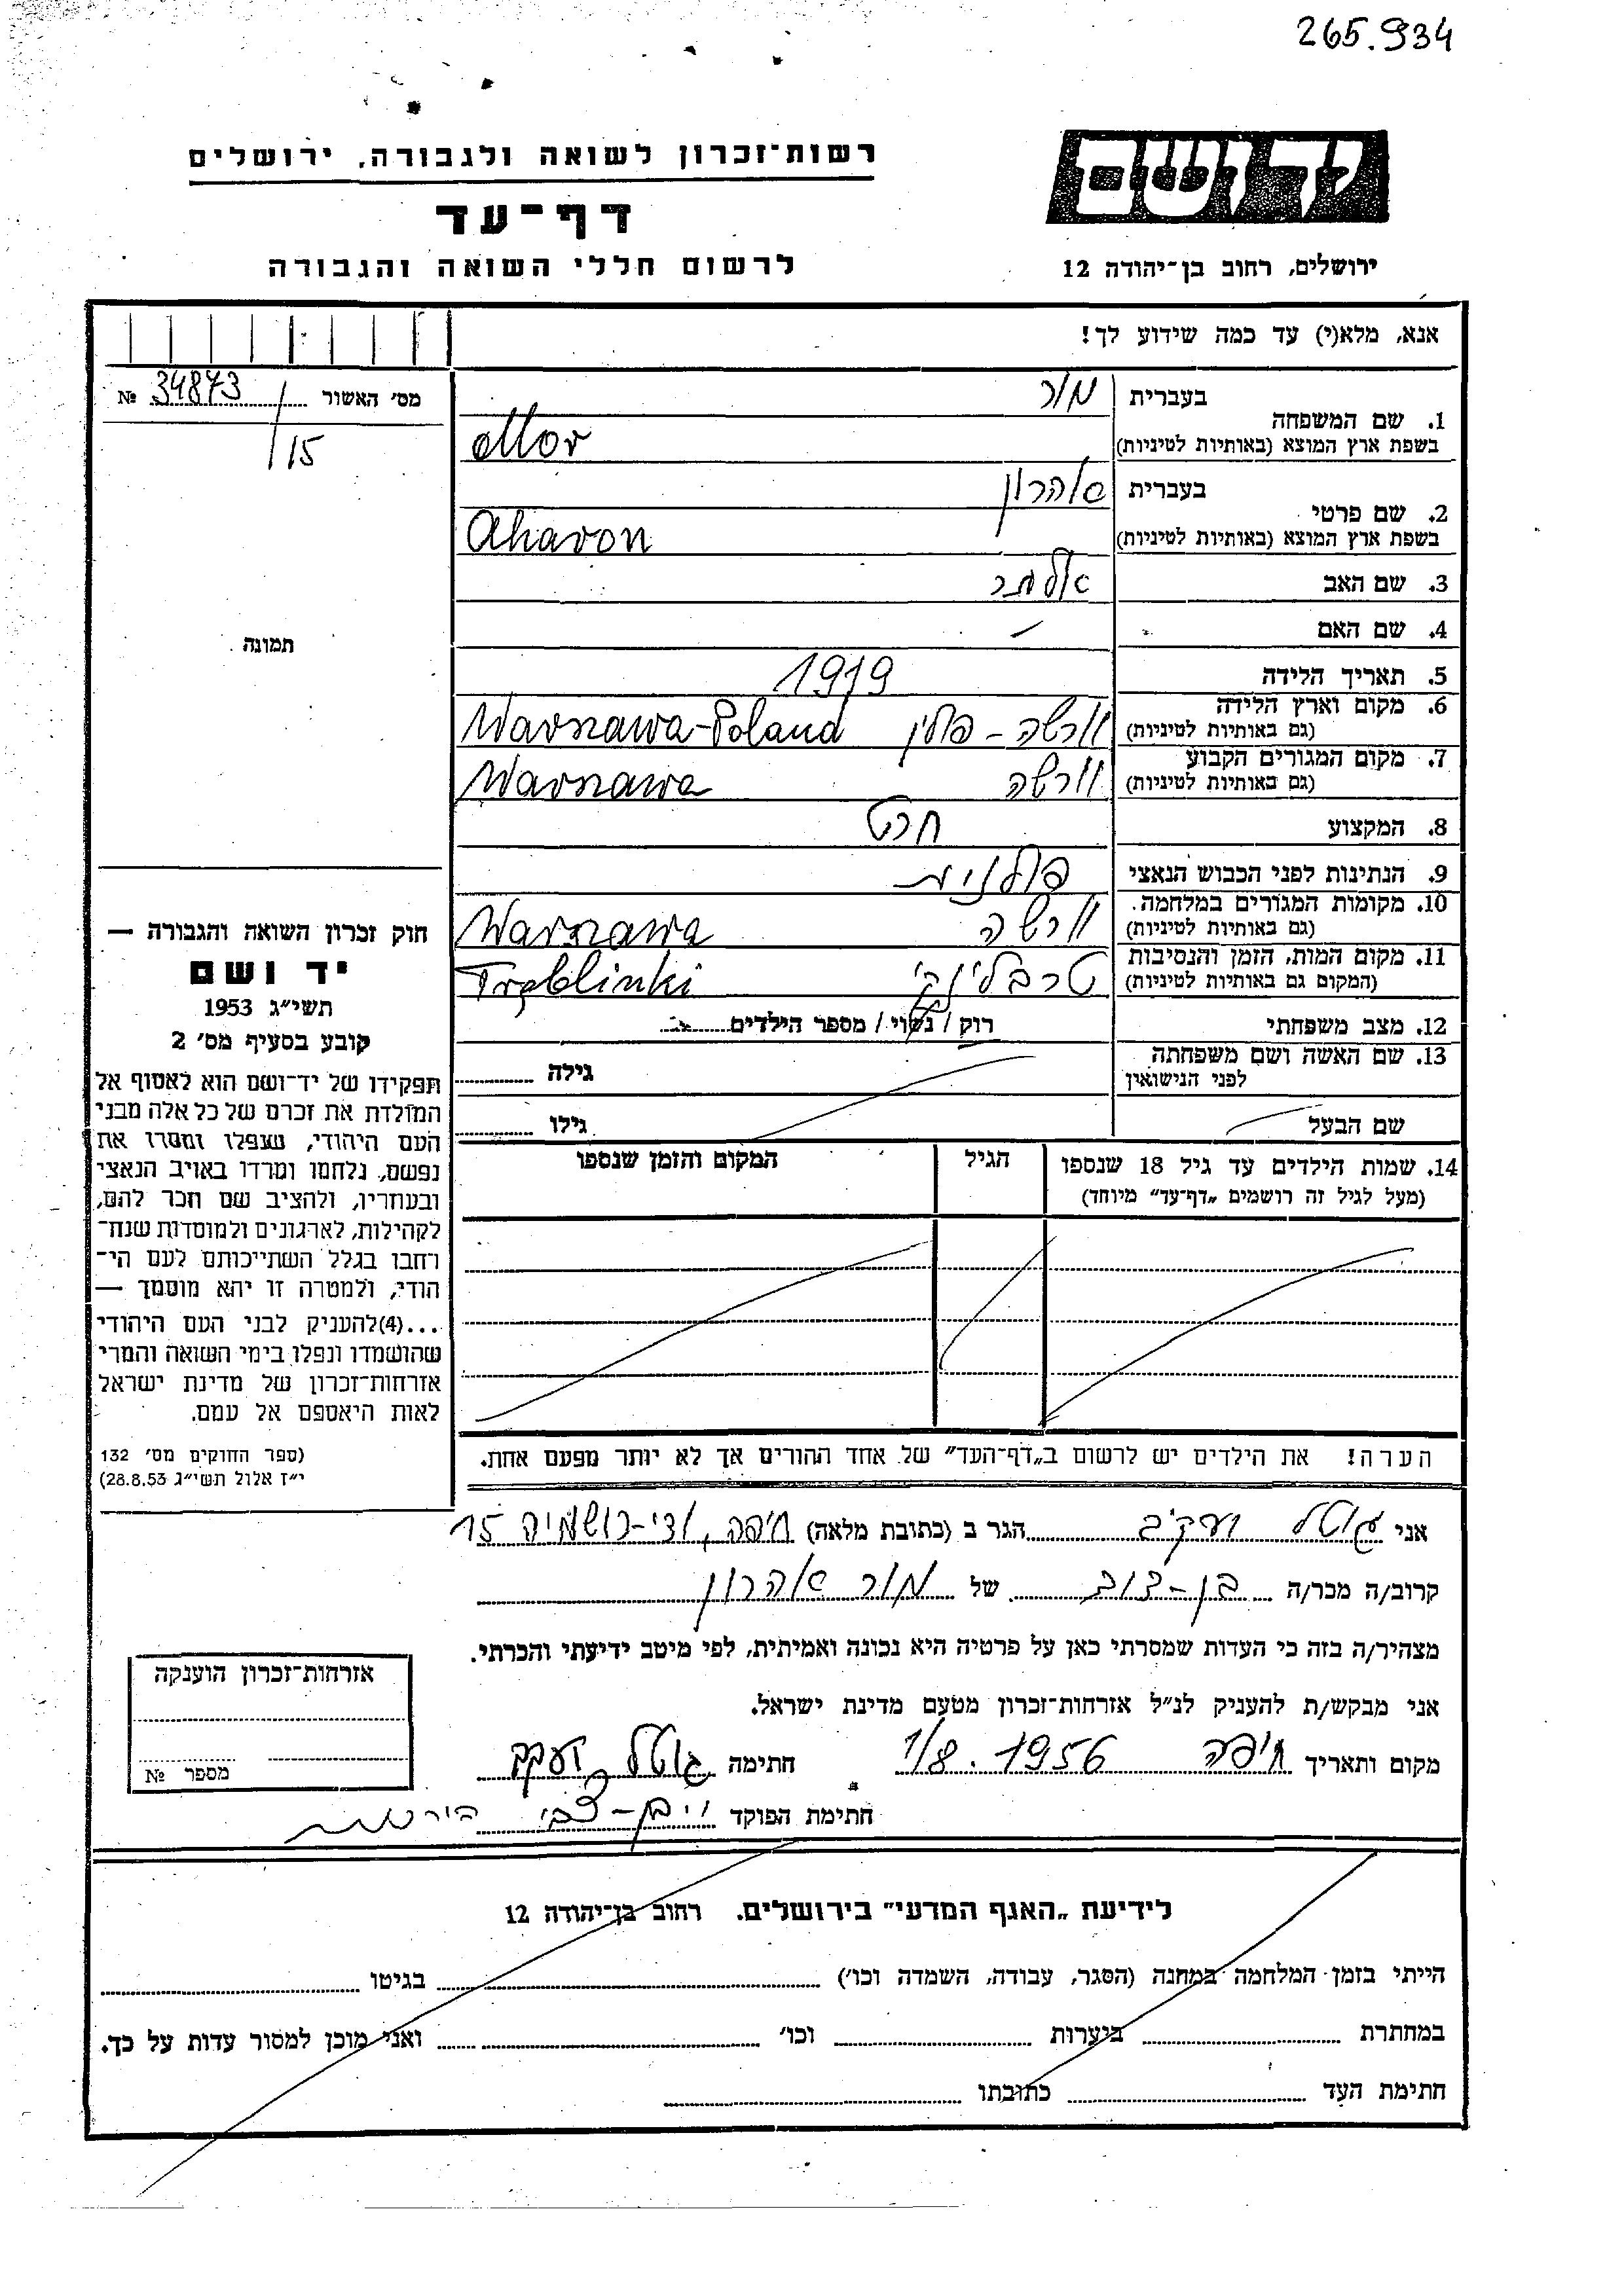 265.934
רשות־זכרון לשואה ולגבורה, ירושלים
יד ושם
דף־עד
לרשום חללי השואה והגבורה
ירושלים, רחוב בן־יהודה 12
אנא, מלא(י) עד כמה שידוע לך!
מס׳ האשור 34873 №
/15
תמונה
1. שם המשפחה בעברית מור
בשפת ארץ המוצא (באותיות לטיניות) Mor
2. שם פרטי בעברית אהרון
בשפת ארץ המוצא (באותיות לטיניות) Aharon
3. שם האב
4. שם האם —
5. תאריך הלידה 1919
6. מקום וארץ הלידה (גם באותיות לטיניות) וורשה - פולין Warszawa-Poland
7. מקום המגורים הקבוע (גם באותיות לטיניות) וורשה Warszawa
8. המקצוע חרט
9. הנתינות לפני הכבוש הנאצי פולנית
10. מקומות המגורים במלחמה (גם באותיות לטיניות) וורשה Warszawa
11. מקום המות, הזמן והנסיבות (המקום גם באותיות לטיניות) טרבלינקי Treblinki
12. מצב משפחתי רוק / נשוי / מספר הילדים
13. שם האשה ושם משפחתה לפני הנישואין גילה
שם הבעל גילו
14. שמות הילדים עד גיל 18 שנספו הגיל המקום והזמן שנספו
(מעל לגיל זה רושמים „דף־עד״ מיוחד)
הערה! את הילדים יש לרשום ב„דף־העד״ של אחד ההורים אך לא יותר מפעם אחת.
חוק זכרון השואה והגבורה —
יד ושם
תשי״ג 1953
קובע בסעיף מס׳ 2
תפקידו של יד־ושם הוא לאסוף אל
המולדת את זכרם של כל אלה מבני
העם היהודי, שנפלו ומסרו את
נפשם, נלחמו ומרדו באויב הנאצי
ובעוזריו, ולהציב שם וזכר להם,
לקהילות, לארגונים ולמוסדות שנח־
רבו בגלל השתייכותם לעם הי־
הודי, ולמטרה זו יהא מוסמך —
...(4)להעניק לבני העם היהודי
שהושמדו ונפלו בימי השואה והמרי
אזרחות־זכרון של מדינת ישראל
לאות היאספם אל עמם.
(ספר החוקים מס׳ 132
י״ז אלול תשי״ג 28.8.53)
אני גוטל יעקב הגר ב (כתובת מלאה) חיפה, ואדי-רושמיה 15
קרוב/ה מכר/ה בן-דוד של מור אהרון
מצהיר/ה בזה כי העדות שמסרתי כאן על פרטיה היא נכונה ואמיתית, לפי מיטב ידיעתי והכרתי.
אני מבקש/ת להעניק לנ״ל אזרחות־זכרון מטעם מדינת ישראל.
מקום ותאריך חיפה 1/8.1956 חתימה גוטל יעקב
חתימת הפוקד בן-צבי
אזרחות־זכרון הוענקה
מספר №
לידיעת „האגף המדעי״ בירושלים. רחוב בן־יהודה 12
הייתי בזמן המלחמה במחנה (הסגר, עבודה, השמדה וכו׳) בגיטו
במחתרת ביערות וכו׳ ואני מוכן למסור עדות על כך.
חתימת העד כתובתו